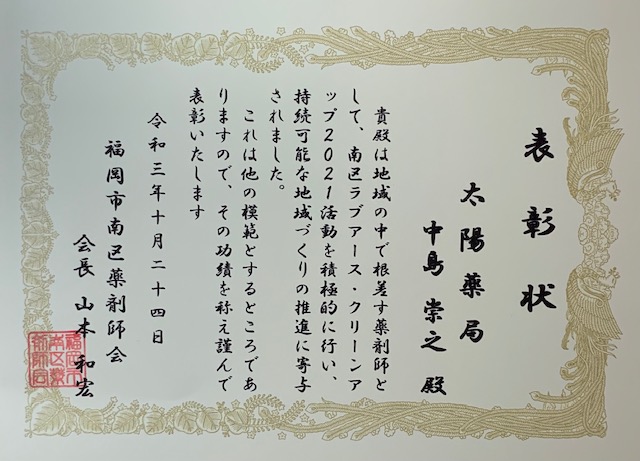 表彰状
太陽薬局
中島崇之 殿
貴殿は地域の中で根差す薬剤師と
して、南区ラブアース・クリーンア
ップ2021活動を積極的に行い、
持続可能な地域づくりの推進に寄与
されました。
これは他の模範とするところであ
りますので、その功績を称え謹んで
表彰いたします
令和三年十月二十四日
福岡市南区薬剤師会
会長 山本 和宏